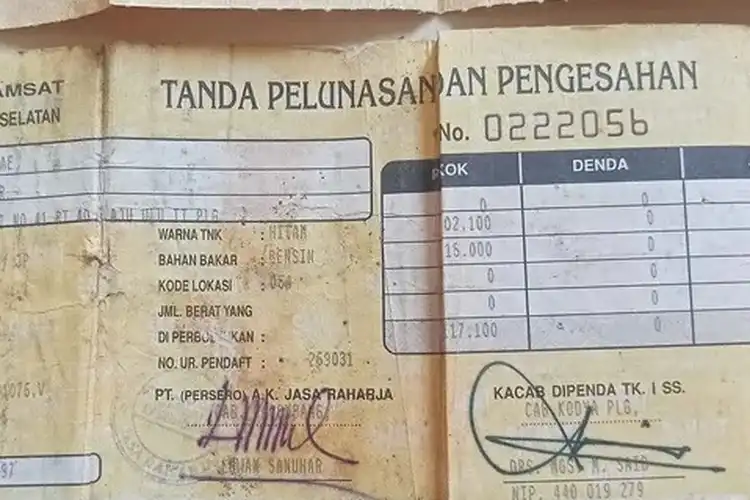 AMSAT
SELATAN
TANDA PELUNASAN DAN PENGESAHAN
No. 0222056
KOK DENDA
0 0
02,100 0
15.000 0
0 0
0 0
17.100 0
WARNA TNK : HITAM
BAHAN BAKAR : BENSIN
KODE LOKASI :
JML. BERAT YANG
DI PERBOLEHKAN :
NO. UR. PENDAFT : 269031
PT. (PERSERO) A.K. JASA RAHARJA
KACAB DIPENDA TK. I SS.
CAB KODYA PLG,
SANUHAR
DRS. M. SAID
NIP. 440 019 279